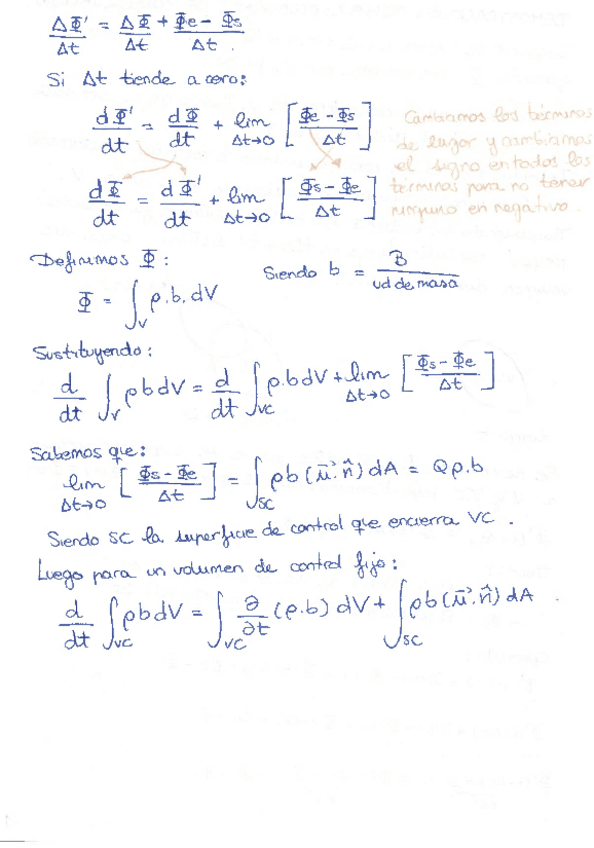 ΔΦ'/Δt = ΔΦ/Δt + Φe - Φs/Δt.
Si Δt tiende a cero:
dΦ'/dt = dΦ/dt + lim Δt→0 [Φe - Φs/Δt]
Cambiamos los términos
de lugar y cambiamos
el signo en todos los
términos para no tener
ninguno en negativo.
dΦ/dt = dΦ'/dt + lim Δt→0 [Φs - Φe/Δt]
Definimos Φ:
Φ = ∫V ρ.b.dV
Siendo b = B/ud de masa
Sustituyendo:
d/dt ∫V ρbdV = d/dt ∫VC ρ.bdV + lim Δt→0 [Φs - Φe/Δt]
Sabemos que:
lim Δt→0 [Φs - Φe/Δt] = ∫SC ρb(u⃗.n̂)dA = Qρ.b
Siendo SC la superficie de control que encierra VC.
Luego para un volumen de control fijo:
d/dt ∫VC ρbdV = ∫VC ∂/∂t (ρ.b) dV + ∫SC ρb(u⃗.n̂)dA.